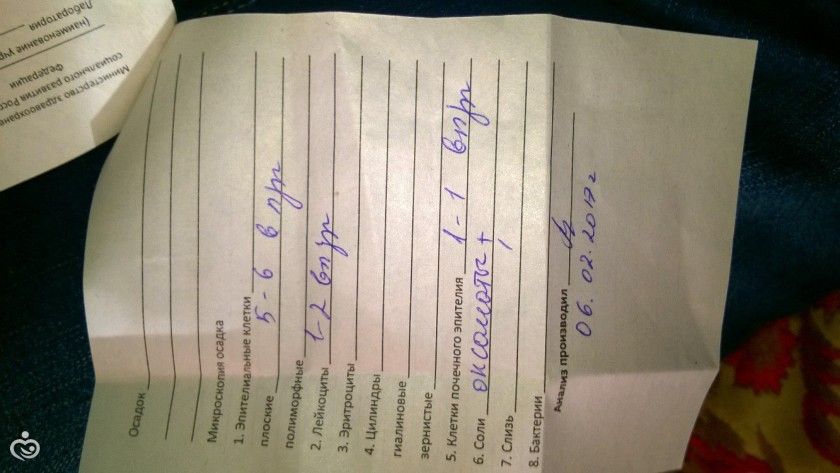 Министерство здравоохране
социального развития Рос
Федерации
(наименование учр
Лаборатория
Осадок
Микроскопия осадка
1. Эпителиальные клетки
плоские 5-6 в п/зр
полиморфные
2. Лейкоциты 1-2 в п/зр
3. Эритроциты
4. Цилиндры
гиалиновые
зернистые
5. Клетки почечного эпителия 1-1 в п/зр
6. Соли оксалаты +
7. Слизь
8. Бактерии
Анализ производил
06.02.2017 г